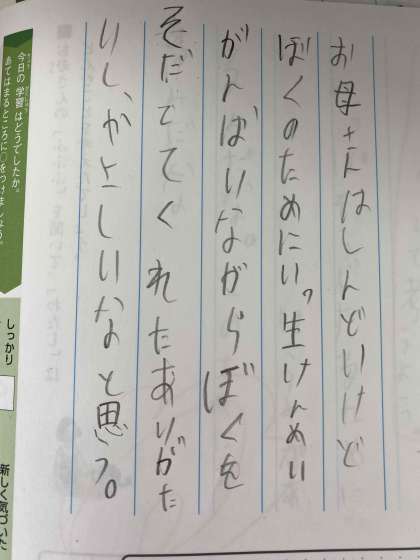 お母さんはしんどいけど
ぼくのためにいっ生けんめい
がんばいながらぼくを
そだててくれたありがた
いし、かなしいなと思う。
今日の学習はどうでしたか。
あてはまるところに○をつけましょう。
しっかり
新しく気づいた